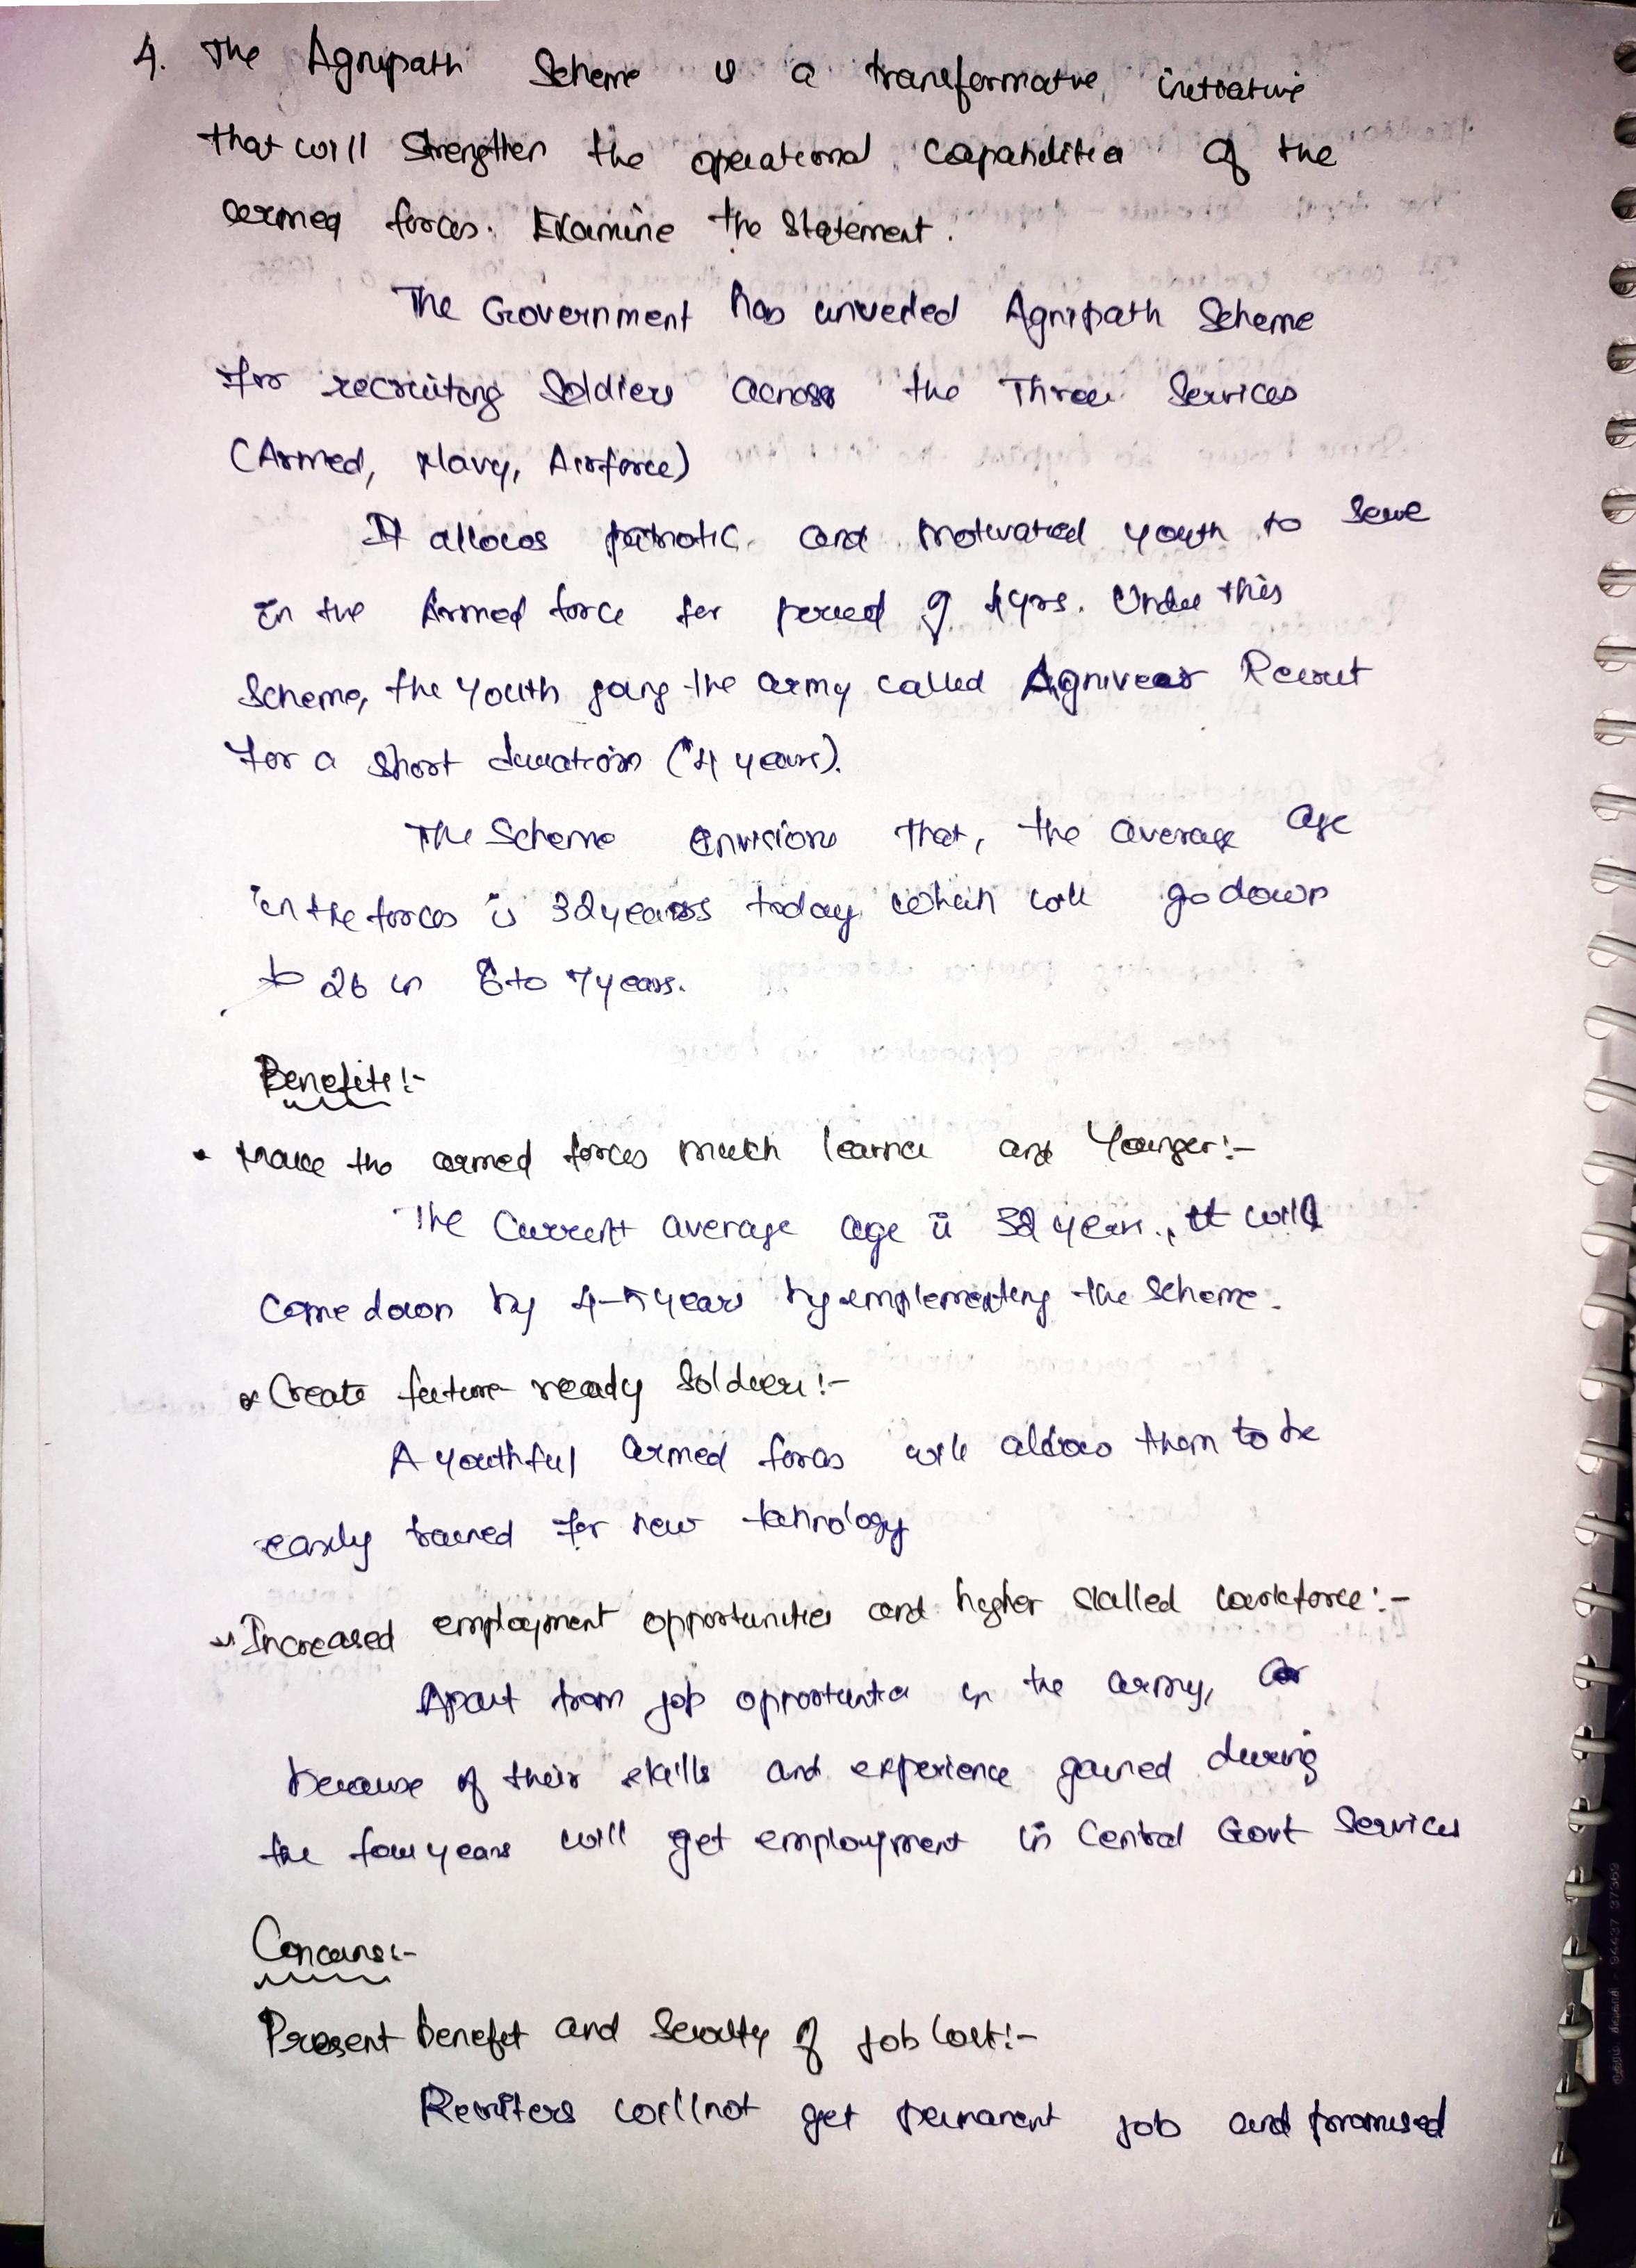 4. The Agnipath Scheme is a transformative initiative
that will Strengthen the operational capabilities of the
armed forces. Examine the Statement.
The Government has unveiled Agnipath Scheme
for recruiting Soldiers across the Three Services
(Armed, Navy, Airforce)
It allows patriotic and motivated youth to serve
in the Armed force for period of 4yrs. Under this
Scheme, the youth joing the army called Agniveer Recruit
For a short duration (4 years).
The Scheme envisions that, the average age
in the forces is 32 years today which will go down
to 26 in 6 to 7 years.
Benefits:-
• Make the armed forces much leaner and Younger:-
The Current average age is 32 years., it will
come down by 4-5 years by implementing the Scheme.
* Create future ready Soldiers:-
A youthful armed forces will allow them to be
easily trained for new technology
* Increased employment opportunities and higher skilled workforce:-
Apart from job opportunities in the army,
because of their skills and experience gained during
the four years will get employment in Central Govt Services
Concerns:-
Present benefit and Security of job lost:-
Recruiters will not get permanent job and promised